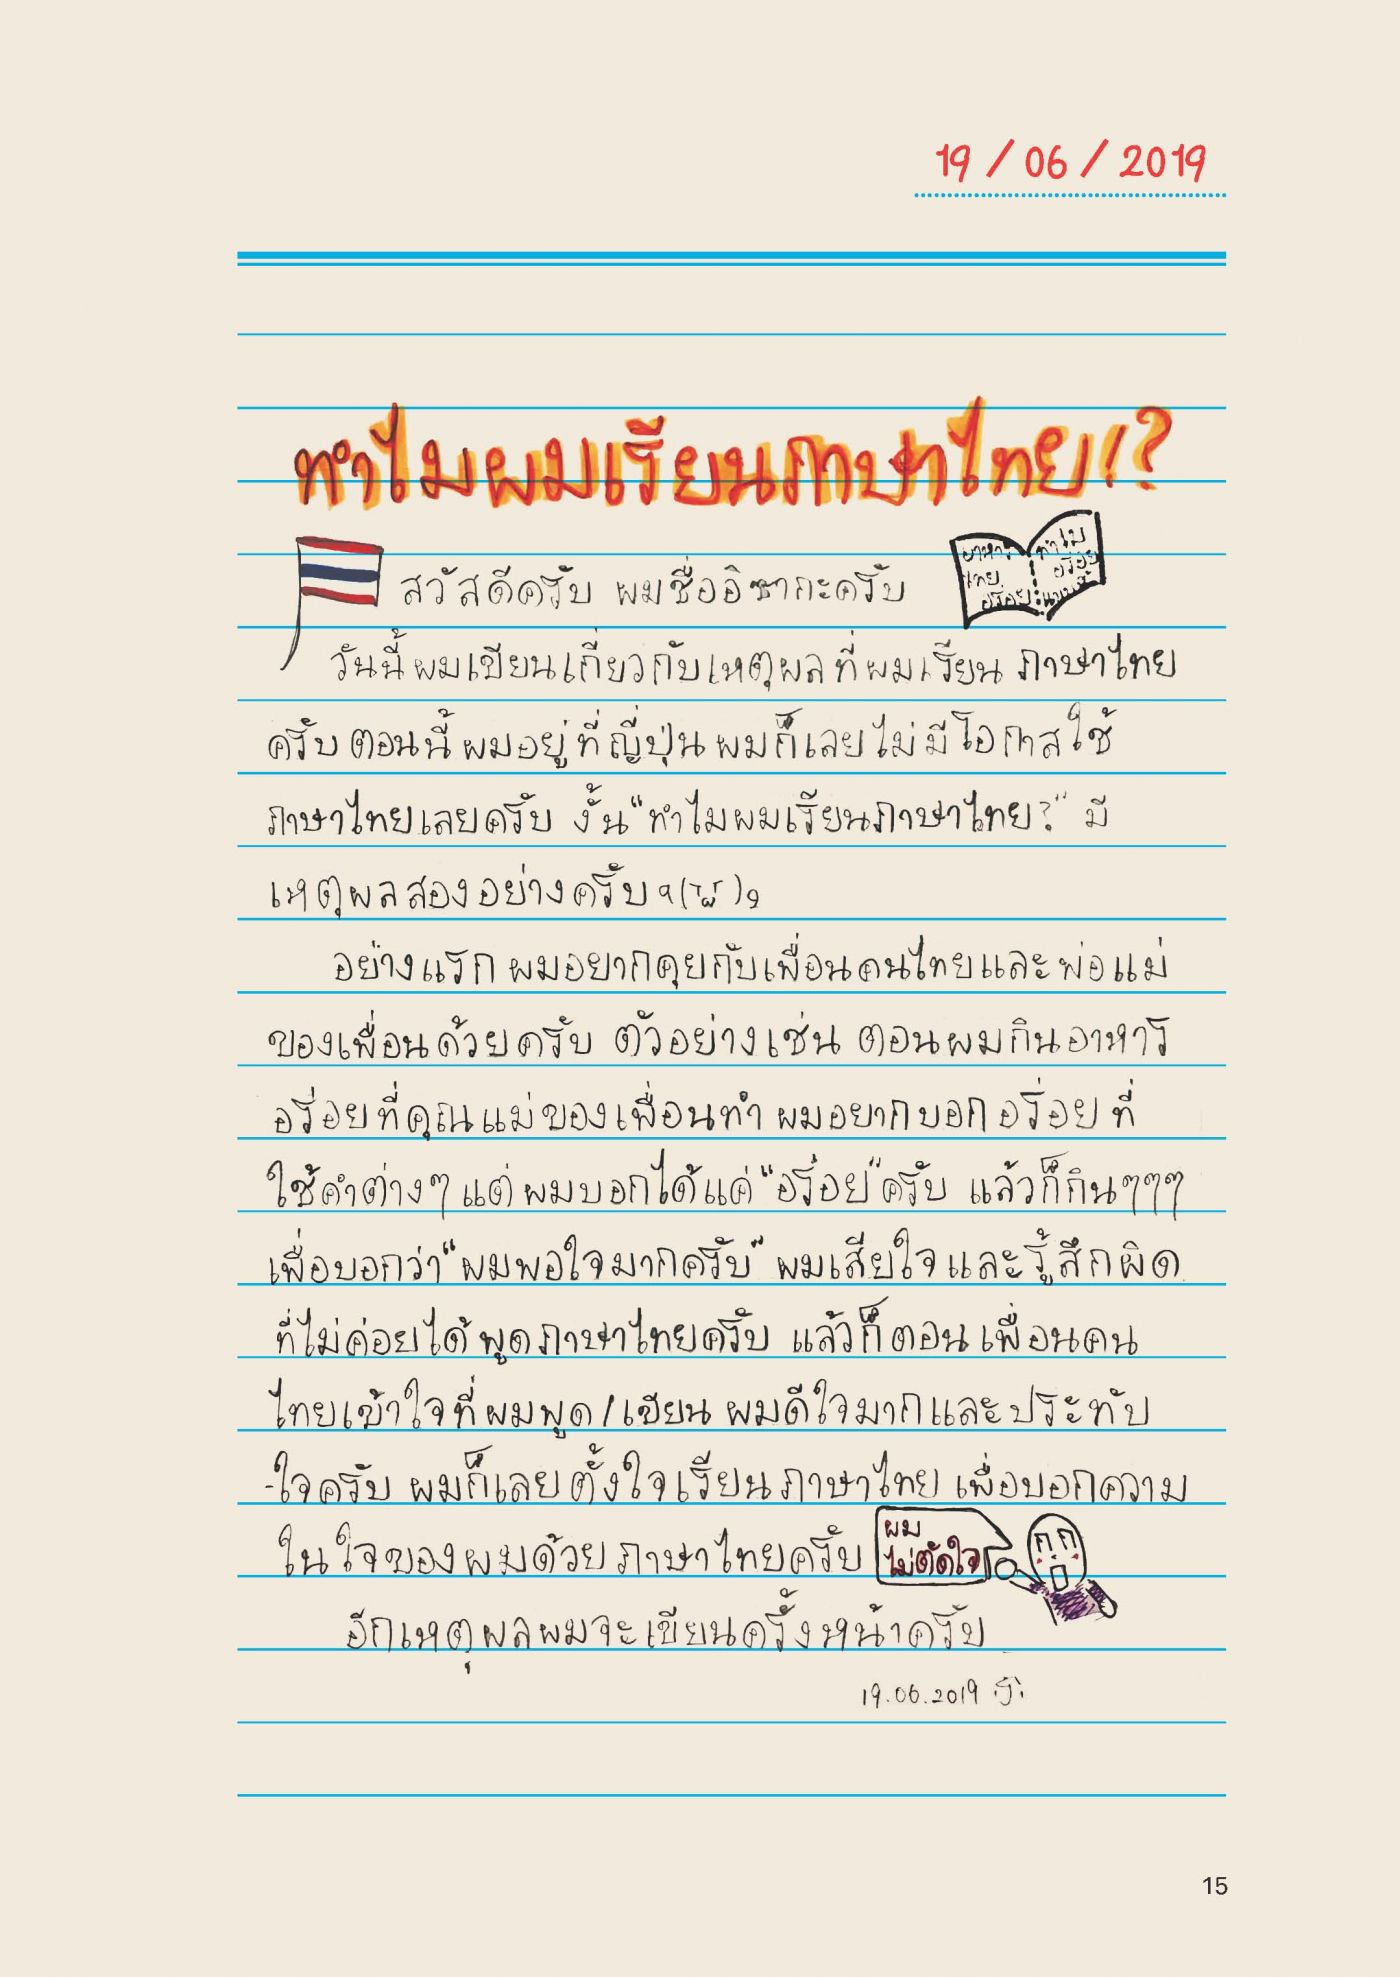 19 / 06 / 2019
ทำไมผมเรียนภาษาไทย!?
อาหาร
ไทย
อร่อย
ทำไม
อร่อย
สวัสดีครับ ผมชื่ออิซากะครับ
วันนี้ผมเขียนเกี่ยวกับเหตุผลที่ผมเรียน ภาษาไทย
ครับ ตอนนี้ ผมอยู่ที่ญี่ปุ่น ผมก็เลยไม่มีโอกาสใช้
ภาษาไทยเลยครับ งั้น "ทำไมผมเรียนภาษาไทย?" มี
เหตุผลสองอย่างครับ
อย่างแรก ผมอยากคุยกับเพื่อนคนไทยและพ่อแม่
ของเพื่อนด้วยครับ ตัวอย่างเช่น ตอนผมกินอาหาร
อร่อยที่คุณแม่ของเพื่อนทำ ผมอยากบอกอร่อยที่
ใช้คำต่างๆ แต่ผมบอกได้แค่ "อร่อย" ครับ แล้วก็กินๆๆๆ
เพื่อบอกว่า "ผมพอใจมากครับ" ผมเสียใจและรู้สึกผิด
ที่ไม่ค่อยได้พูดภาษาไทยครับ แล้วก็ตอนเพื่อนคน
ไทยเข้าใจที่ผมพูด/เขียน ผมดีใจมากและประทับ
-ใจครับ ผมก็เลยตั้งใจเรียนภาษาไทย เพื่อบอกความ
ในใจของผมด้วยภาษาไทยครับ
ผม
ไม่ตัดใจ
อีกเหตุผลผมจะเขียนครั้งหน้าครับ
19.06.2019
15